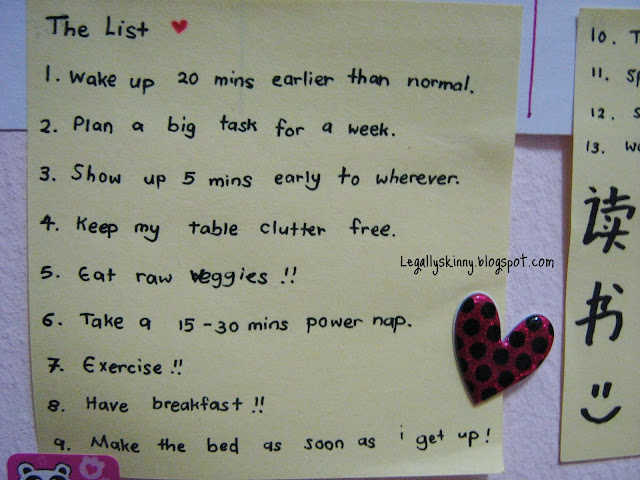 The List
1. Wake up 20 mins earlier than normal.
2. Plan a big task for a week.
3. Show up 5 mins early to wherever.
4. Keep my table clutter free.
5. Eat raw veggies !!
6. Take a 15-30 mins power nap.
7. Exercise !!
8. Have breakfast !!
9. Make the bed as soon as i get up!
Legallyskinny.blogspot.com
10.
11.
12.
13.
读书